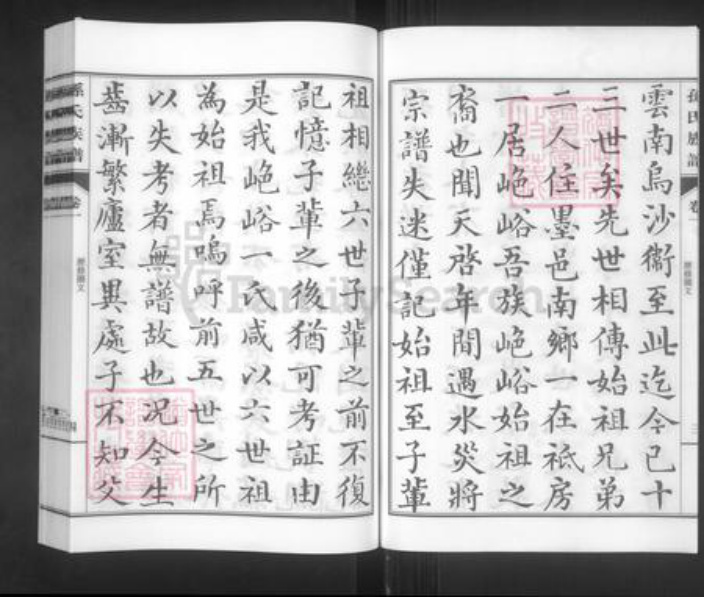 雲南烏沙衞至此迄今已十
三世矣先世相傳始祖兄弟
二人住墨邑南鄉一在祗房
一居峗峪吾族峗峪始祖之
裔也聞天啓年間遇水災將
宗譜失迷僅記始祖至子輩
祖相繼六世子輩之前不復
記憶子輩之後猶可考証由
是我峗峪一氏咸以六世祖
為始祖焉嗚呼前五世之所
以失考者無譜故也況今生
齒漸繁廬室異處子不知父
孫氏族譜
卷一
FamilySearch